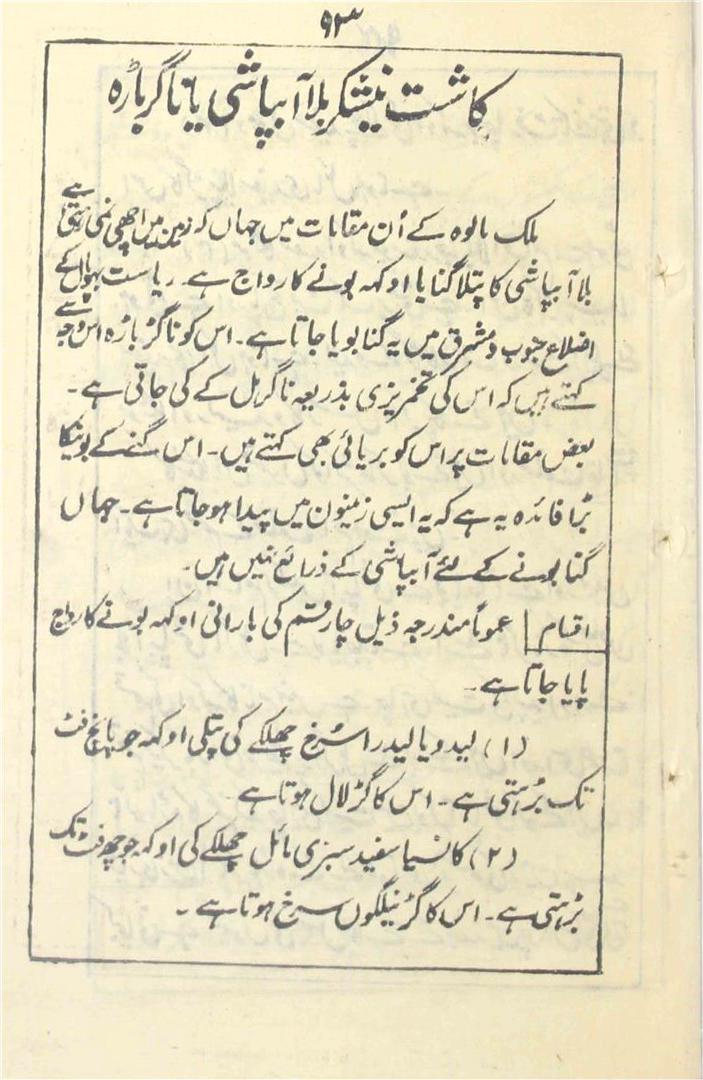 ۹۳
کاشت نیشکر بلا آبپاشی یا ناگر باڑہ
ملک مالوہ کے اُن مقامات میں جہاں کہ زمین میں اچھی نمی رہتی ہے
بلا آبپاشی کا پتلا گنا یا اوکہہ بونے کا رواج ہے۔ ریاست بھوپال کے
اضلاع جنوب و مشرق میں یہ گنا بویا جاتا ہے۔ اس کو ناگڑ باڑہ اس وجہ سے
کہتے ہیں کہ اس کی تخمریزی بذریعہ ناگر ہل کے کی جاتی ہے۔
بعض مقامات پر اس کو بریائی بھی کہتے ہیں۔ اس گنے کے بونیکا
بڑا فائدہ یہ ہے کہ یہ ایسی زمینوں میں پیدا ہو جاتا ہے۔ جہاں
گنا بونے کے لئے آبپاشی کے ذرائع نہیں ہیں۔
اقسام | عموماً مندرجہ ذیل چار قسم کی بارانی اوکہہ بونے کا رواج
پایا جاتا ہے۔
(۱) لیدو یا لیدرا سُرخ چھلکے کی پتلی اوکہہ جو پانچ فٹ
تک بڑہتی ہے۔ اس کا گڑ لال ہوتا ہے۔
(۲) کانسیا سفید سبزی مائل چھلکے کی اوکہہ جو چھ فٹ تک
بڑہتی ہے۔ اس کا گڑ نیلگوں سرخ ہوتا ہے۔